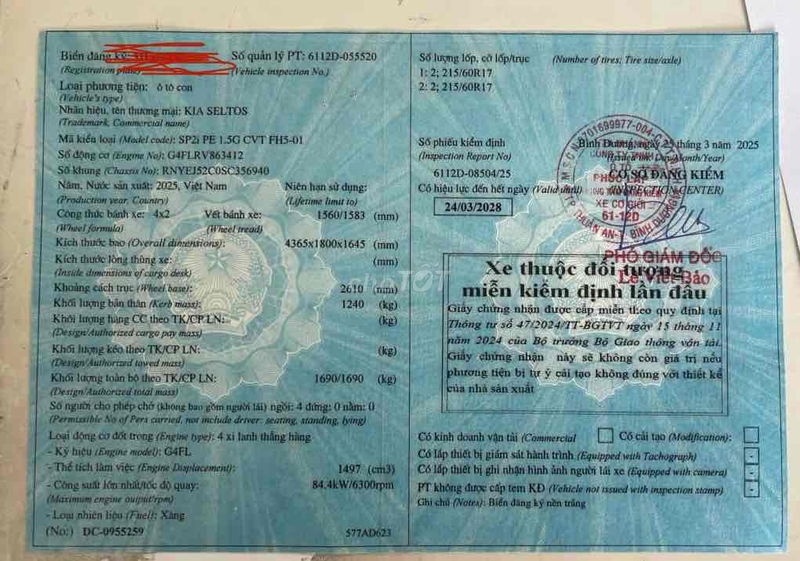 Biển đăng ký:
Số quản lý PT: 6112D-055520
(Registration plate)
(Vehicle inspection No.)
Loại phương tiện: ô tô con
(Vehicle's type)
Nhãn hiệu, tên thương mại: KIA SELTOS
(Trademark, Commercial name)
Mã kiểu loại (Model code): SP2i PE 1.5G CVT FH5-01
Số động cơ (Engine No): G4FLRV863412
Số khung (Chassis No): RNYEJ52C0SC356940
Năm, Nước sản xuất: 2025, Việt Nam
Niên hạn sử dụng:
(Production year, Country)
(Lifetime limit to)
Công thức bánh xe: 4x2
Vết bánh xe:
1560/1583 (mm)
(Wheel formula)
(Wheel tread)
Kích thước bao (Overall dimensions): 4365x1800x1645 (mm)
Kích thước lòng thùng xe: (mm)
(Inside dimensions of cargo desk)
Khoảng cách trục (Wheel base): 2610 (mm)
Khối lượng bản thân (Kerb mass): 1240 (kg)
Khối lượng hàng CC theo TK/CP LN: (kg)
(Design/Authorized cargo pay mass)
Khối lượng kéo theo TK/CP LN: (kg)
(Design/Authorized towed mass)
Khối lượng toàn bộ theo TK/CP LN: 1690/1690 (kg)
(Design/Authorized total mass)
Số người cho phép chở (không bao gồm người lái) ngồi: 4 đứng: 0 nằm: 0
(Permissible No of Pers carried, not include driver: seating, standing, lying)
Loại động cơ đốt trong (Engine type): 4 xi lanh thẳng hàng
- Ký hiệu (Engine model): G4FL
- Thể tích làm việc (Engine Displacement): 1497 (cm3)
- Công suất lớn nhất/tốc độ quay: 84.4kW/6300rpm
(Maximum engine output/rpm)
- Loại nhiên liệu (Fuel): Xăng
(No:) DC-0955259
577AD623
Số lượng lốp, cỡ lốp/trục
(Number of tires; Tire size/axle)
1: 2; 215/60R17
2: 2; 215/60R17
Số phiếu kiểm định
Bình Dương, ngày 25 tháng 3 năm 2025
(Inspection Report No)
(Issued on: Day/Month/Year)
6112D-08504/25
CƠ SỞ ĐĂNG KIỂM
Có hiệu lực đến hết ngày (Valid until)
(INSPECTION CENTER)
24/03/2028
XE CƠ GIỚI
61-12D
PHÓ GIÁM ĐỐC
Lê Viết Bảo
Xe thuộc đối tượng
miễn kiểm định lần đầu
Giấy chứng nhận được cấp miễn theo quy định tại
Thông tư số 47/2024/TT-BGTVT ngày 15 tháng 11
năm 2024 của Bộ trưởng Bộ Giao thông vận tải.
Giấy chứng nhận này sẽ không còn giá trị nếu
phương tiện bị tự ý cải tạo không đúng với thiết kế
của nhà sản xuất
Có kinh doanh vận tải (Commercial
Có cải tạo (Modification):
Có lắp thiết bị giám sát hành trình (Equipped with Tachograph)
Có lắp thiết bị ghi nhận hình ảnh người lái xe (Equipped with camera)
PT không được cấp tem KĐ (Vehicle not issued with inspection stamp)
Ghi chú (Notes): Biển đăng ký nền trắng